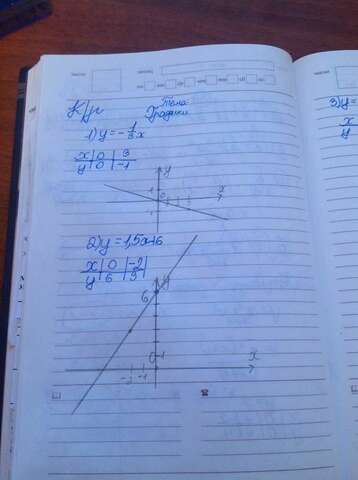 К/р
Тема
Графики
1) y = -1/3x
x | 0 | 3
y | 0 | -1
y
1
0
x
2) y = 1,5x+6
x | 0 | -2
y | 6 | 3
y
6
0 1
-2 -1
x
3) y =
x
y